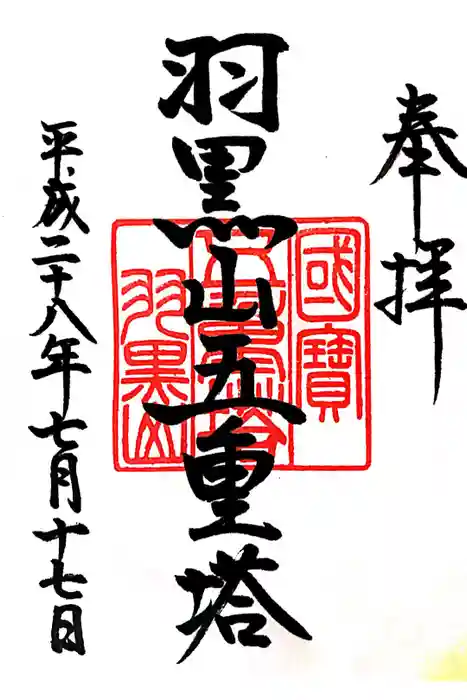 奉拝
羽黒山五重塔
國寶
五重塔
羽黒山
平成二十八年七月十七日